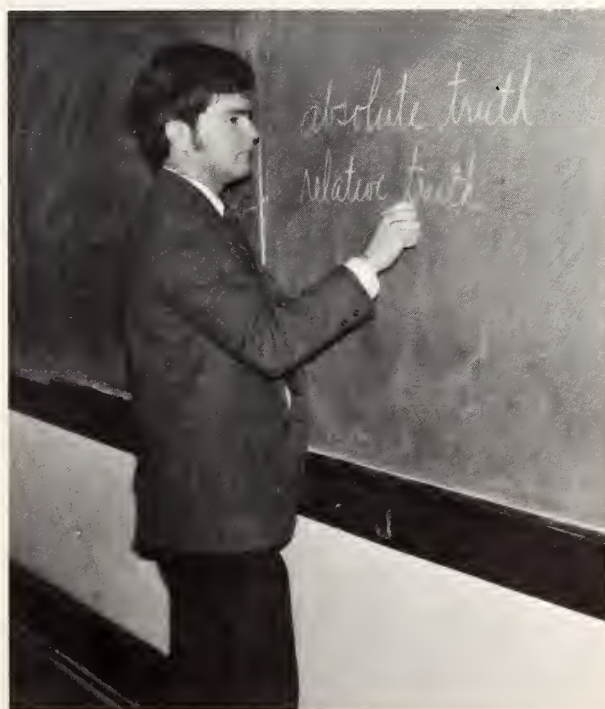 absolute truth
relative truth